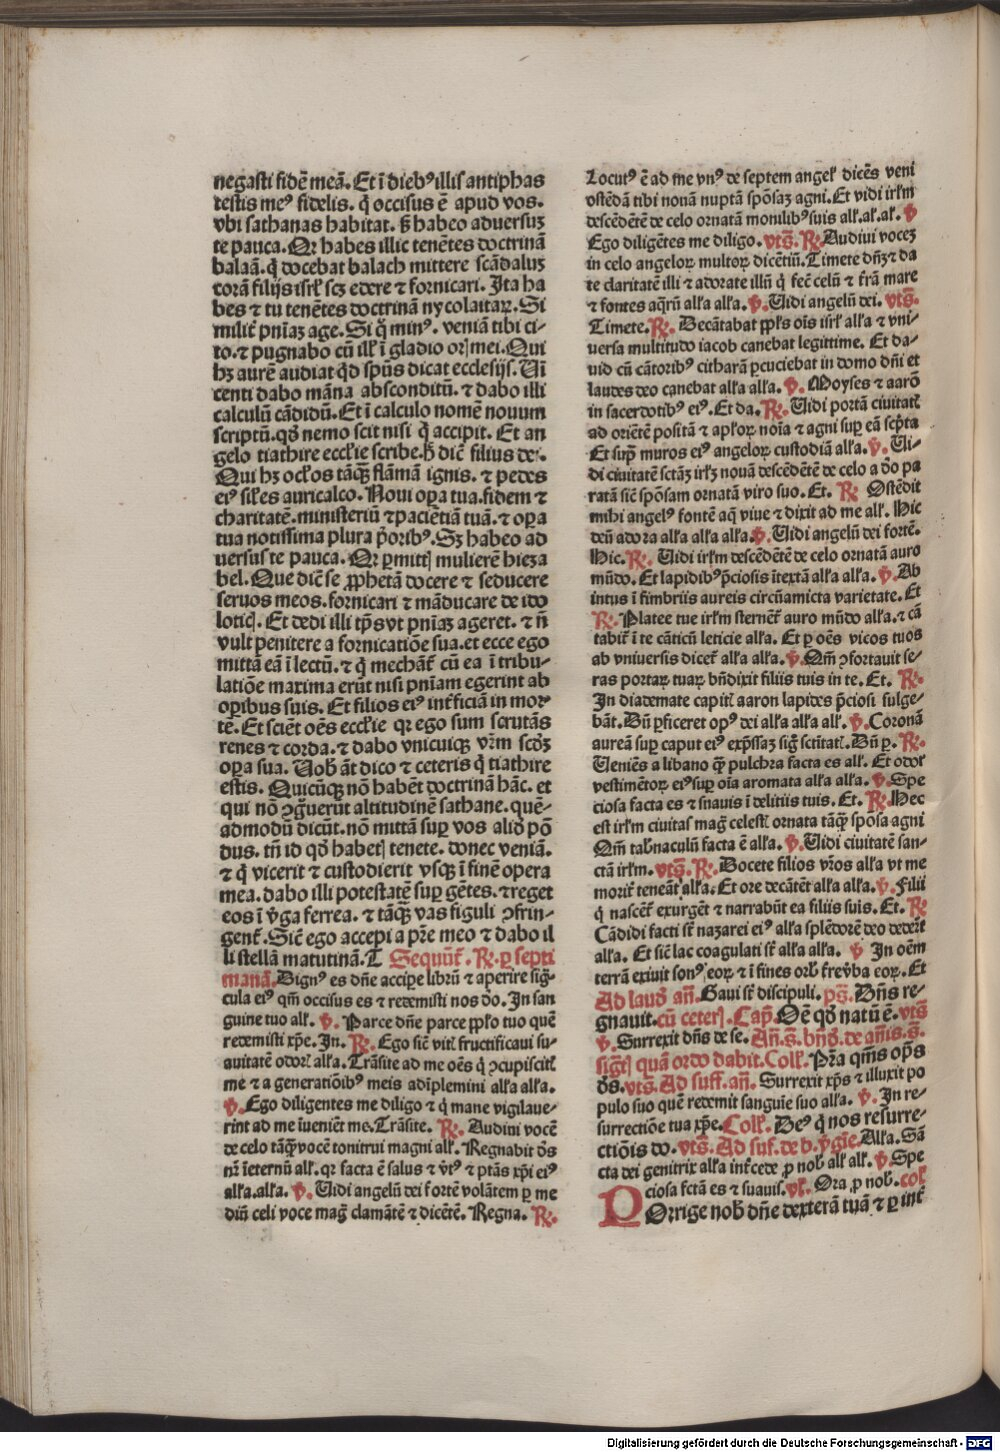 negasti fidē meā. Et ī diebꝰ illis antiphas
testis meꝰ fidelis. q̄ occisus ē apud vos.
vbi sathanas habitat. ſꝫ habeo aduersuꝫ
te pauca. Qꝛ habes illic tenētes doctrinā
balaā. q̄ docebat balach mittere scādaluꝫ
corā filijs isrł scꝫ edere ⁊ fornicari. Ita ha
bes ⁊ tu tenētes doctrinā nycolaitaꝝ. Si
milit̄ pn̄iaꝫ age. Si q̄ minꝰ. veniā tibi ci-
to. ⁊ pugnabo cū ill̓ ī gladio oꝛꝭ mei. Qui
hꝫ aurē audiat qd̄ spūs dicat ecclesijs. Vī
centi dabo māna absconditū. ⁊ dabo illi
calculū cādidū. Et ī calculo nomē nouum
scriptū. qd̓ nemo scit nisi q̄ accipit. Et an
gelo tiathire eccl̓ie scribe. h̓ dic̄ filius de:.
Qui hꝫ ocl̓os tāꝙ̄ flāmā ignis. ⁊ pedes
eiꝰ sil̓es auricalco. Noui oꝑa tua. fidem ⁊
charitatē. ministeriū ⁊ paciētiā tuā. ⁊ oꝑa
tua notissima plura p̄oribꝰ. Sꝫ habeo ad
uersus te pauca. Qꝛ ꝑmittꝭ mulierē hieza
bel. Que dic̄ se ꝓphetā docere ⁊ seducere
seruos meos. fornicari ⁊ māducare de ido
loticꝭ. Et dedi illi tp̄s vt pn̄iaꝫ ageret. ⁊ n̄
vult penitere a fornicatiōe sua. et ecce ego
mittā eā ī lectū. ⁊ q̄ mechāt̄ cū ea ī tribu-
latiōe maxima erūt nisi pn̄iam egerint ab
oꝑibus suis. Et filios eiꝰ int̄ficiā in moꝛ
te. Et sciēt oēs eccl̓ie qꝛ ego sum scrutās
renes ⁊ corda. ⁊ dabo vnicuiqꝫ vr̄m scd̓ꝫ
oꝑa sua. Uob̓ āt dico ⁊ ceteris q̄ tiathire
estis. Quicūqꝫ nō habēt doctrinā hāc. et
qui nō ꝯgnouerūt altitudinē sathane. quē-
admodū dicūt. nō mittā suꝑ vos aliō pō
dus. tn̄ id qd̓ habetꝭ tenete. donec veniā.
⁊ q̄ vicerit ⁊ custodierit vsqꝫ ī finē opera
mea. dabo illi potestatē suꝑ gētes. ⁊ reget
eos ī v̓ga ferrea. ⁊ tāꝙ̄ vas figuli ꝯfrin-
gent̄. Sic̄ ego accepi a pr̄e meo ⁊ dabo il
li stellā matutinā. T Sequūt̄. ℞. ꝑ septi
manā. Dignꝰ es dn̄e acciꝑe librū ⁊ aperire sig̓-
cula eiꝰ qm̄ occisus es ⁊ redemisti nos d̓o. In san
guine tuo all̓. ℣. Parce dn̄e parce ppl̓o tuo quē
redemisti xp̄e. In. ℞. Ego sic̄ vitꝭ fructificaui su-
auitatē odorꝭ all̓a. Trāsite ad me oēs q̄ ꝯcupiscitꝭ
me ⁊ a generatiōibꝰ meis adīplemini all̓a all̓a.
℣. Ego diligentes me diligo ⁊ q̄ mane vigilaue-
rint ad me īueniēt me. Trāsite. ℞. Audiui vocē
de celo tāꝙ̄ vocē tonitrui magni all̓. Regnabit d̓s
nr̄ īeternū all̓. qꝛ facta ē salus ⁊ v̓tꝰ ⁊ ptās xp̄i eiꝰ
all̓a. all̓a. ℣. Uidi angelū dei fortē volātem ꝑ me
diū celi voce mag̓ clamātē ⁊ dicētē. Regna. ℞.
Locutꝰ ē ad me vnꝰ de septem angel̓ dicēs veni
ostēdā tibi nouā nuptā spōsaꝫ agni. Et vidi irl̓m
descēdētē de celo ornatā monilibꝰ suis all̓. al̓. al̓. ℣
Ego diligētes me diligo. vts̄. ℞. Audiui voceꝫ
in celo angeloꝝ multoꝝ dicētiū. Timete dn̄ꝫ ⁊ da
te claritatē illi ⁊ adorate illū q̄ fec̄ celū ⁊ t̄rā mare
⁊ fontes aq̄rū all̓a all̓a. ℣. Uidi angelū dei. vts̄.
Timete. ℞. Decātabat ppl̓s oīs isrl̓ all̓a ⁊ vni-
uersa multitudo iacob canebat legittime. Et da-
uid cū cātoribꝰ citharā ꝑcuciebat in domo dn̄i et
laudes deo canebat all̓a all̓a. ℣. Moyses ⁊ aarō
in sacerdotibꝰ eiꝰ. Et da. ℞. Uidi portā ciuitatꝭ
ad oriētē positā ⁊ apl̓oꝝ noīa ⁊ agni suꝑ eā sc̓pta
Et suꝑ muros eiꝰ angeloꝝ custodiā all̓a. ℣. Ui-
di ciuitatē sctāꝫ irl̓ꝫ nouā descēdētē de celo a d̓o pa
ratā sic̄ spōsam ornatā viro suo. Et. ℞. Ostēdit
mihi angelꝰ fontē aq̄ viue ⁊ dixit ad me all̓. Hic
deū adora all̓a all̓a all̓a. ℣. Uidi angelū dei fortē.
Hic. ℞. Uidi irl̓m descēdētē de celo ornatā auro
mūdo. Et lapidibꝰ p̄ciosis ītextā all̓a all̓a. ℣. Ab
intus ī fimbriis aureis circūamicta varietate. Et
℞. Platee tue irl̓m sternēt̄ auro mūdo all̓a. ⁊ cā
tabit̄ ī te cāticū leticie all̓a. Et ꝑ oēs vicos tuos
ab vniuersis dicet̄ all̓a all̓a. ℣. Qm̄ ꝯfortauit se-
ras portaꝝ tuaꝝ bn̄dixit filiis tuis in te. Et. ℞.
In diademate capitꝭ aaron lapides p̄ciosi fulge-
bāt. Dū ꝑficeret opꝰ dei all̓a all̓a all̓. ℣. Coronā
aureā suꝑ caput eiꝰ exp̄ssaꝫ sig̓ sctitatꝭ. Dū ꝑ. ℞.
Ueniēs a libano ꝙ̄ pulchra facta es all̓. Et odor̓
vestimētoꝝ eiꝰ suꝑ oīa aromata all̓a all̓a. ℣. Spe
ciosa facta es ⁊ suauis ī delitiis tuis. Et. ℞. Hec
est irl̓m ciuitas mag̓ celestꝭ ornata tāꝙ̄ spōsa agni
Qm̄ tab̓naculū facta ē all̓a. ℣. Uidi ciuitatē san-
ctā irl̓m. vts̄. ℞. Docete filios vr̄os all̓a vt me
morit̓ teneāt all̓a. Et ore decātēt all̓a all̓a. ℣. Filii
q̄ nascēt̄ exurgēt ⁊ narrabūt ea filiis suis. Et. ℞
Cādidi facti sūt nazarei eiꝰ all̓a splēdorē deo dedert̄
all̓a. Et sic̄ lac coagulati sūt all̓a all̓a. ℣ In oēm
terrā exiuit sonꝰ eoꝝ ⁊ ī fines orb̓ t̓re v̓ba eoꝝ. Et
Ad laud̓ an̄. Gaui sūt discipuli. ps̄. Dn̄s re-
gnauit. cū ceterꝭ. Cap̄. Oē qd̓ natū ē. vts̄
℣. Surrexit dn̄s de se. An̄. s̄. bn̄d̓. de an̄is. s̄.
sig̓tꝭ quā ordo dabit. Coll̓. Pr̄a qm̄s op̄s
d̓s. vts̄. Ad suff. an̄. Surrexit xp̄s ⁊ illuxit po
pulo suo quē redemit sanguīe suo all̓a. ℣. In re-
surrectiōe tua xp̄e. Coll̓. Deꝰ q̄ nos resurre-
ctiōis do. vts̄. Ad suf. de b. v̓gīe. All̓a. Sā
cta dei genitrix all̓a int̓cede ꝓ nob̓ all̓ all̓. ℣. Spe
ciosa fctā es ⁊ suauis. vl̓. Ora ꝓ nob̓. col̓.
POrrige nob̓ dn̄e dexterā tuā ⁊ ꝑ int̓
Digitalisierung gefördert durch die Deutsche Forschungsgemeinschaft - DFG